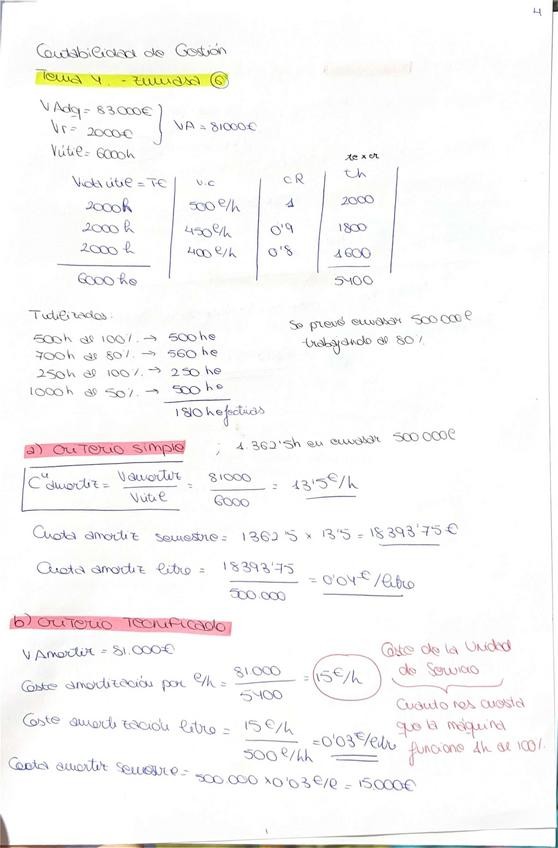 4
Contabilidad de Gestión
Tema 4. - Zumosa ⑥
V Adq = 83000€
Vr = 2000€
VA = 81000€
Vútil = 6000h
te x cr
Vida útil = TE v.c CR th
2000h 500 l/h 1 2000
2000 h 450 l/h 0'9 1800
2000 h 400 l/h 0'8 1600
6000 he 5400
Tutilizados.
500h al 100% → 500 he
700h al 80% → 560 he
250h al 100% → 250 he
1000h al 50% → 500 he
1810 he fectivas
Se prevé envasar 500 000l
trabajando al 80%
a) criterio simple ; 1.362'5h en envasar 500 000l
Cᵘ amortiz = Vamortiz / Vútil = 81000 / 6000 = 13'5€/h
Cuota amortiz semestre = 1362'5 x 13'5 = 18393'75€
Cuota amortiz litro = 18393'75 / 500.000 = 0'04€/litro
b) criterio tecnificado
V Amortiz = 81.000€
Coste amortización por €/h = 81.000 / 5400 = 15€/h
Coste de la Unidad
de Servicio
Cuanto nos cuesta
que la máquina
funcione 1h al 100%
Coste amortización litro = 15€/h / 500 l/h = 0'03€/litro
Cuota amortiz semestre = 500.000 x 0'03€/l = 15.000€
1